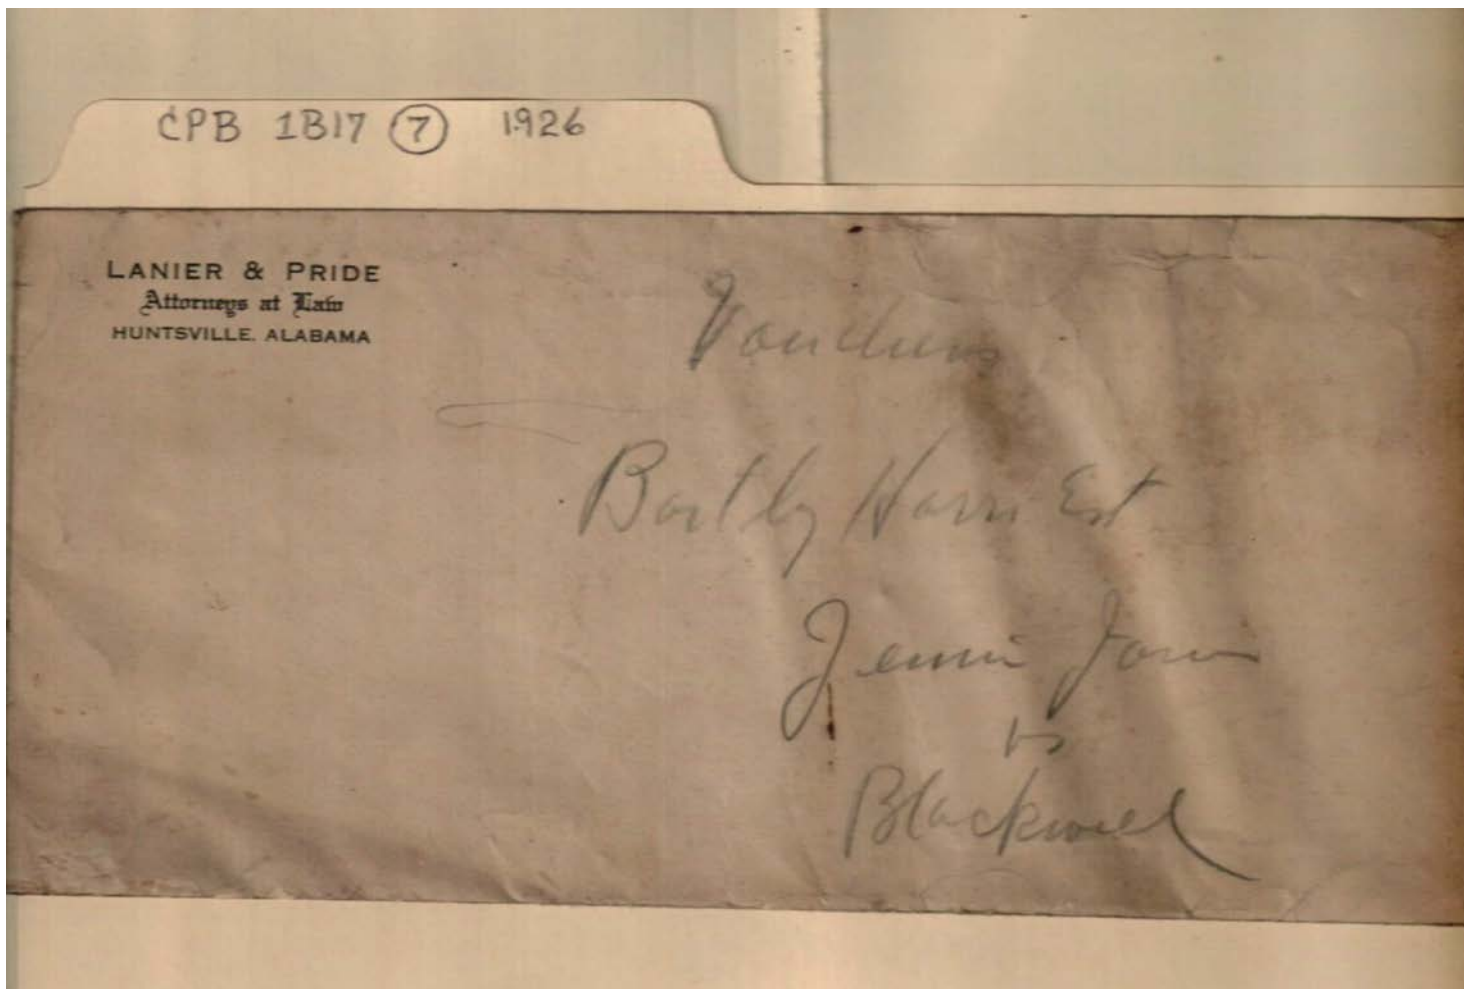 CPB 1B17 7 1926
LANIER & PRIDE
Attorneys at Law
HUNTSVILLE, ALABAMA
Vouchers
Bartly Harris Est.
Jennie
vs
Blackwell